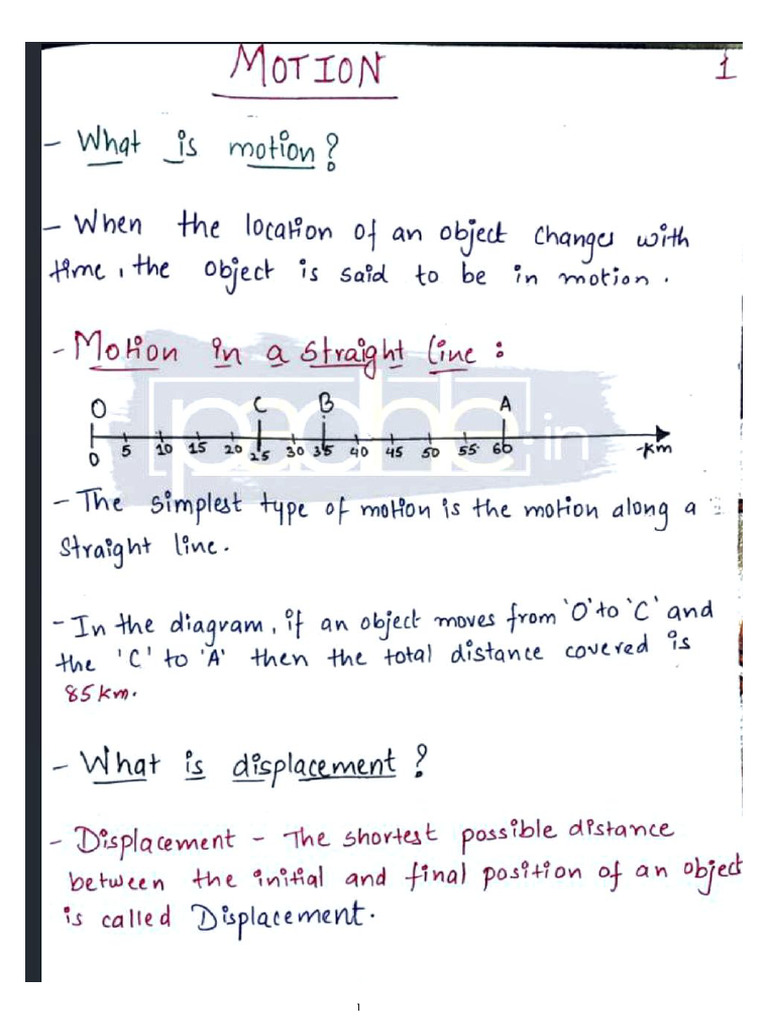 MOTION 1
- What is motion?
- When the location of an object changes with
time, the object is said to be in motion.
- Motion in a straight line :
O C B A
0 5 10 15 20 25 30 35 40 45 50 55 60 -km
padhle.in
- The simplest type of motion is the motion along a
straight line.
- In the diagram, if an object moves from 'O' to 'C' and
the 'C' to 'A' then the total distance covered is
85km.
- What is displacement ?
- Displacement - The shortest possible distance
between the initial and final position of an object
is called Displacement.
1